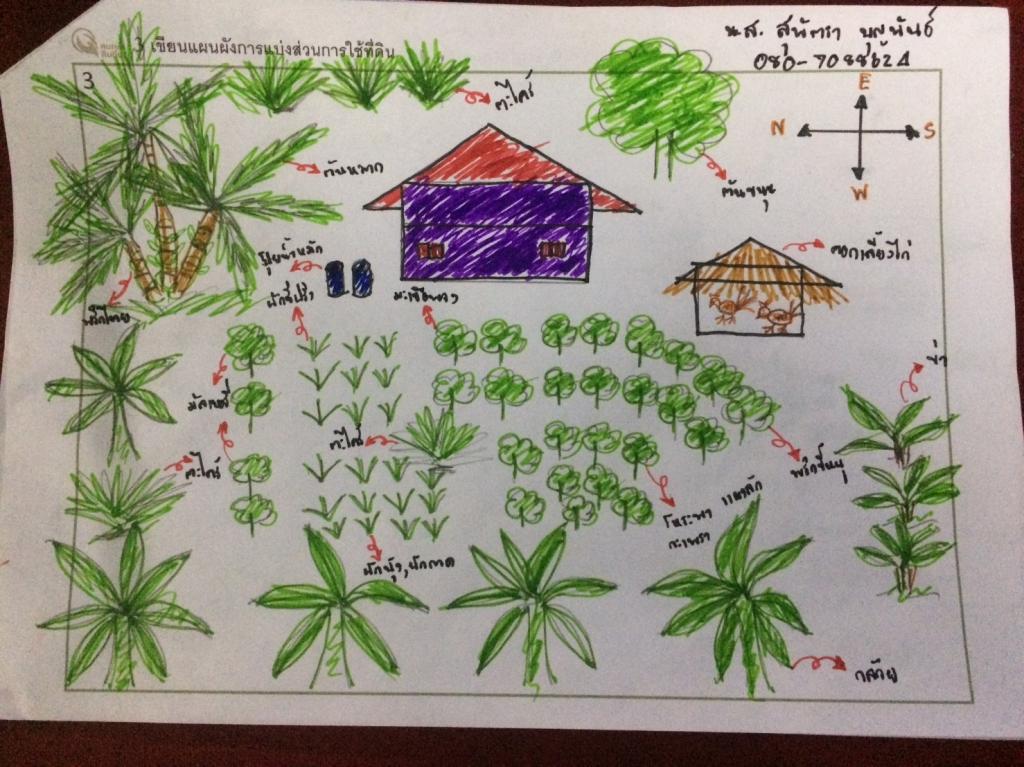 3 เขียนแผนผังการแบ่งส่วนการใช้ที่ดิน
น.ส. สุนัตรา บุญพันธ์
3
E
N S
W
ตะไคร้
ต้นหมาก
ต้นขนุน
คอกเลี้ยงไก่
ปุ๋ยน้ำหมัก
ผักชีฝรั่ง
มะเขือพวง
พริกไทย
ข่า
มัลเบอรี่
ตะไคร้
ตะไคร้
พริกขี้หนู
โหระพา แมงลัก
กะเพรา
ผักบุ้ง, ผักกาด
กล้วย